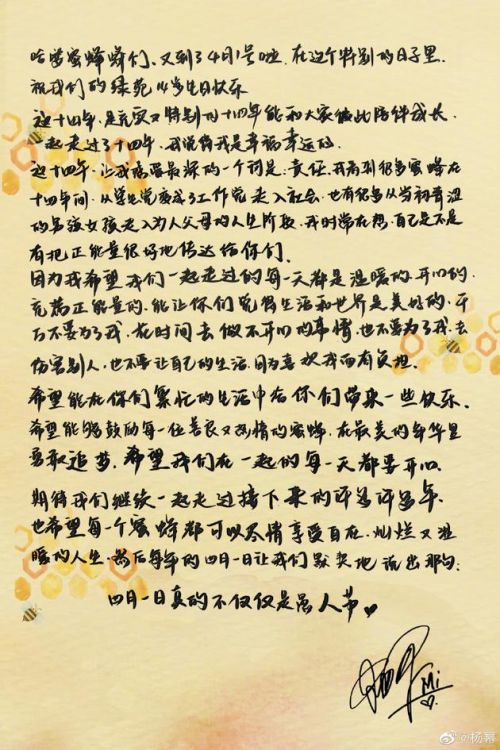 哈喽蜜蜂蜂们、又到了4月1号啦、在这个特别的日子里、
祝我们的绿苑14岁生日快乐
这十四年，是充实又特别的十四年能和大家彼此陪伴成长、
一起走过了十四年，我觉得我是幸福幸运的、
这十四年、让我感受最深的一个词是：责任、我看到很多蜜蜂在
十四年间、从学生党变成了工作党走入社会、也有很多从当初青涩
的男孩女孩走入为人父母的人生阶段、我时常在想，自己是不是
有把正能量很好地传达给你们、
因为我希望我们一起走过的每一天都是温暖的、开心的、
充满正能量的、能让你们觉得生活和世界是美好的、千
万不要为了我、花时间去做不开心的事情、也不要为了我、去
伤害别人，也不要让自己的生活、因为喜欢我而有负担、
希望能在你们繁忙的生活中给你们带来一些快乐、
希望能够鼓励每一位善良又热情的蜜蜂、在最美的年华里
勇敢追梦、希望我们在一起的每一天都要开心、
期待我们继续一起走过接下来的许多许多年、
也希望每一个蜜蜂都可以尽情享受自在、灿烂又温
暖的人生、然后每年的四月一日让我们默契地说出那句：
四月一日真的不仅仅是愚人节
Mi
@杨幂